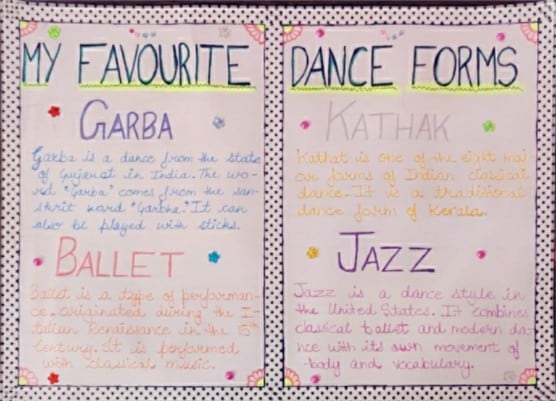 MY FAVOURITE
GARBA
Garba is a dance from the state
of Gujarat in India. The wo-
rd "Garba" comes from the san-
skrit word "Garbha." It can
also be played with sticks.
BALLET
Ballet is a type of performan-
ce originated during the I-
talian Renaissance in the 15th
century. It is performed
with classical music.
DANCE FORMS
KATHAK
Kathak is one of the eight maj-
or forms of Indian classical
dance. It is a traditional
dance form of Kerala.
JAZZ
Jazz is a dance style in
the United States. It combines
classical ballet and modern da-
nce with its own movement of
body and vocabulary.